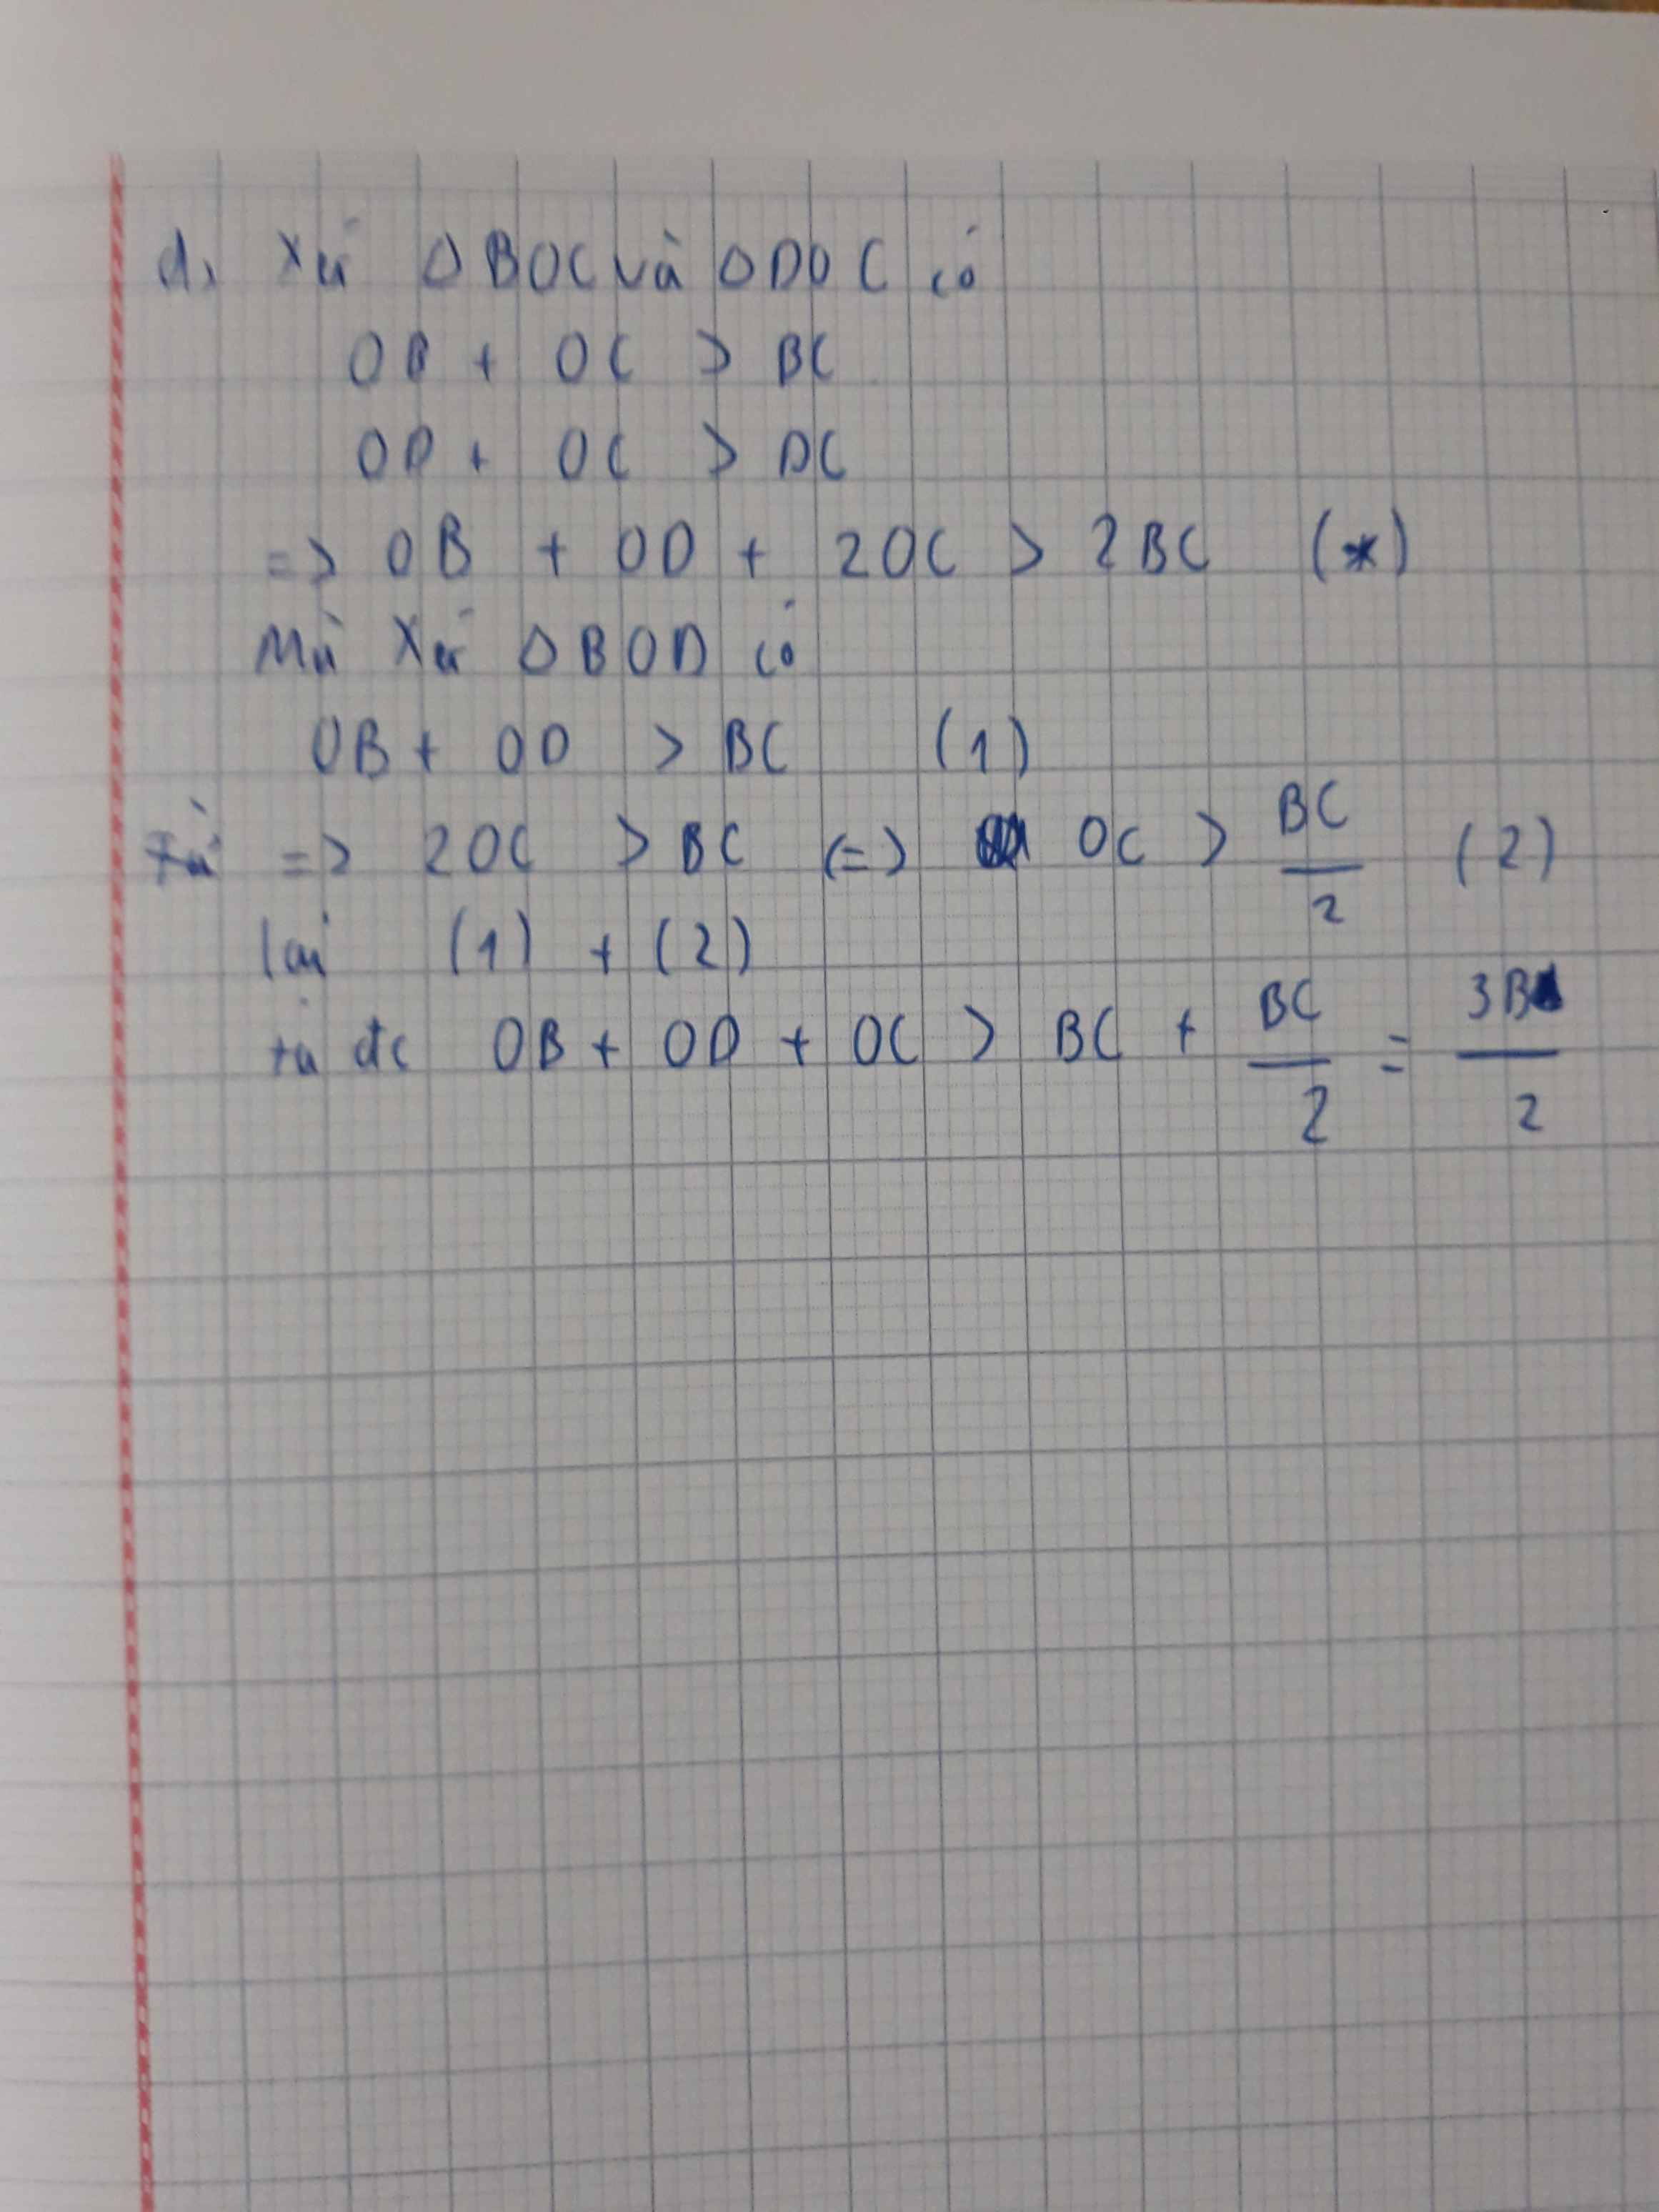 d, Xét Δ BOC và Δ DOC có
OB + OC > BC
OD + OC > DC
=> OB + OD + 2OC > 2BC (*)
Mà Xét Δ BOD có
OB + OD > BC (1)
Từ => 2OC > BC <=> OC > BC/2 (2)
lấy (1) + (2)
ta đc OB + OD + OC > BC + BC/2 = 3BC/2